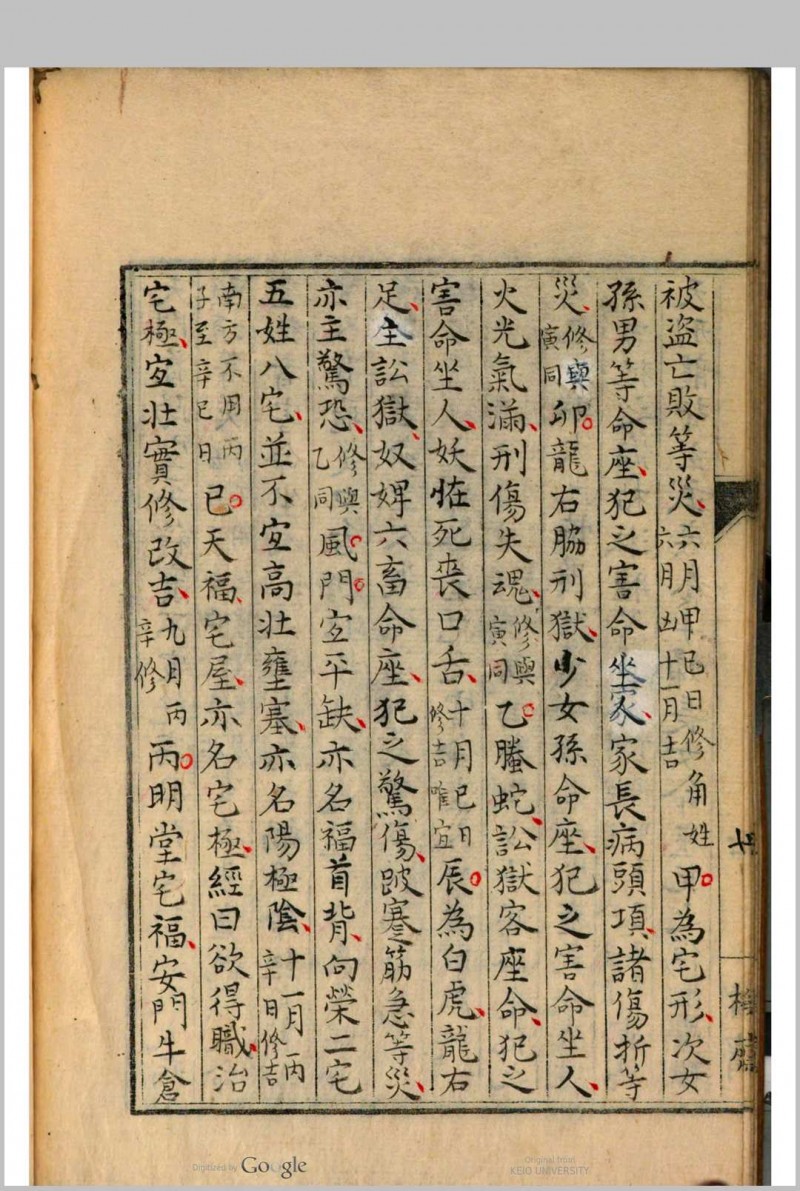 被盗亡敗等災六月甲己日修角姓六月凶十一月吉甲為宅形次女
孫男等命座犯之害命坐家家長病頭項諸傷折等
災修與寅同卯龍右脇刑獄少女孫命座犯之害命坐人
火光氣滿刑傷失魂修與寅同乙螣蛇訟獄客座命犯之
害命坐人妖恠死喪口舌十月己日修吉唯宜辰為白虎龍右
足主訟獄奴婢六畜命座犯之驚傷跛蹇筋急等災
亦主驚恐修與乙同風門宜平缺亦名福首背向榮二宅
五姓八宅並不宜高壯壅塞亦名陽極陰十一月丙辛日修吉
南方不用丙子至辛巳日巳天福宅屋亦名宅極經曰欲得職治
宅極宜壯實修改吉九月丙辛修丙明堂宅福安門牛倉
Digitized by Google
Original from
KEIO UNIVERSITY